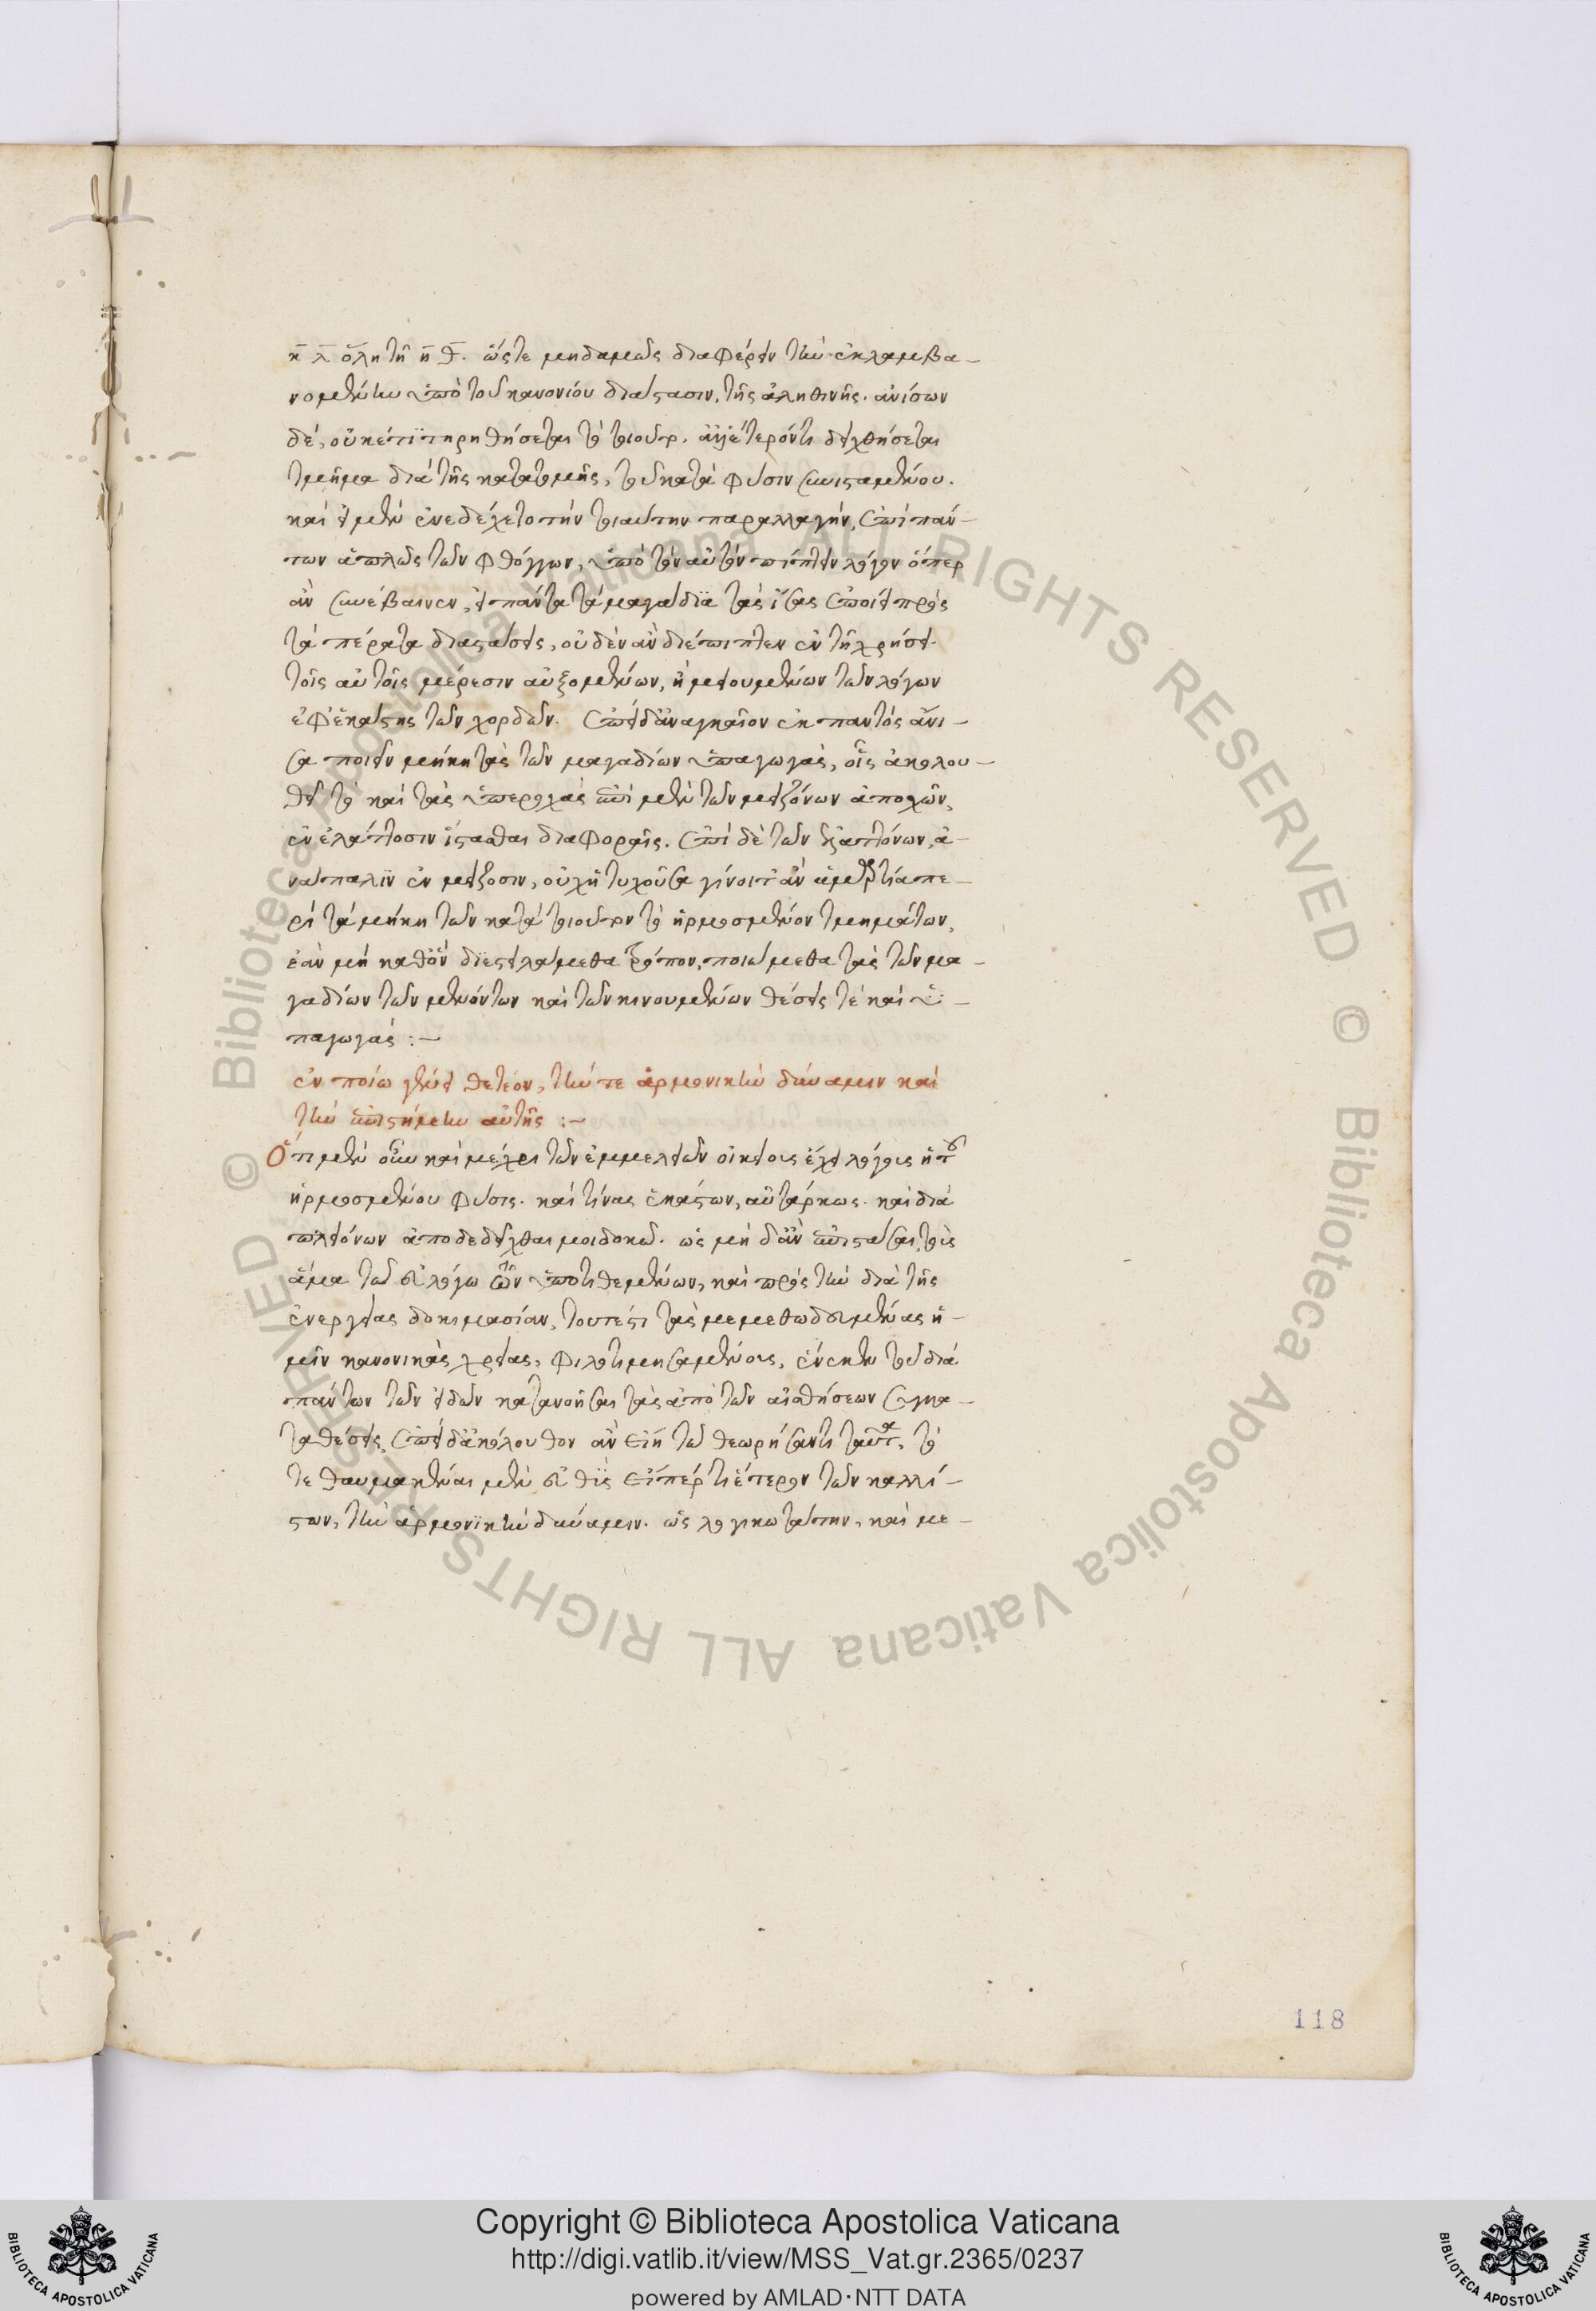 κ̅ λ̅ ὅλη τῆ η̅ θ̅. ὥστε μηδαμῶς διαφέρειν τὴν ἐκλαμβα-
νομένην ὑπὸ τοῦ κανονίου διάστασιν, τῆς ἀληθινῆς. ἀνίσων
δὲ, οὐκέτι τηρηθήσεται τὸ τοιοῦτο. ἀλλ' ἕτερόν τι δειχθήσεται
τμῆμα διὰ τῆς κατατομῆς, τοῦ κατὰ φύσιν συνισταμένου.
καὶ εἰ μὲν ἐνεδέχετο τὴν τοιαύτην παραλλαγὴν, ἐπὶ πάν-
των ἁπλῶς τῶν φθόγγων, ὑπὸ τὸν αὐτὸν πίπτειν λόγον ὅπερ
ἂν συνέβαινεν, εἰ πάντα τὰ μαγάδια τὰς ἴσας ἐποίει πρὸς
τὰ πέρατα διαστάσεις, οὐδὲν ἂν διέπιπτεν ἐν τῆ χρήσει.
τοῖς αὐτοῖς μέρεσιν αὐξομένων, ἢ μειουμένων τῶν λόγων
ἐφ' ἑκάστης τῶν χορδῶν. ἐπεὶ δ' ἀναγκαῖον ἐκ παντὸς ἄνι-
σα ποιεῖν μήκη τὰς τῶν μαγαδίων ὑπαγωγὰς, οἷς ἀκολου-
θεῖ τὸ καὶ τὰς ὑπεροχὰς ἐπὶ μὲν τῶν μειζόνων ἀποχῶν,
ἐν ἐλάττοσιν ἵστασθαι διαφοραῖς. ἐπὶ δὲ τῶν ἐλαττόνων, ἀ-
νάπαλιν ἐν μείζοσιν, οὐχ ἡ τυχοῦσα γίνοιτ' ἂν ἁμαρτία πε-
ρὶ τὰ μήκη τῶν κατὰ τοιοῦτον τὸ ἡρμοσμένον τμημάτων,
ἐὰν μὴ καθ' ὃν διεστειλάμεθα τρόπον, ποιώμεθα τὰς τῶν μα-
γαδίων τῶν μενόντων καὶ τῶν κινουμένων θέσεις τὲ καὶ ὑ-
παγωγάς :-
ἐν ποίω γένει θετέον, τήν τε ἁρμονικὴν δύναμιν καὶ
τὴν ἐπιστήμην αὐτῆς :-
Ὅτι μὲν οὖν καὶ μέχρι τῶν ἐμμελειῶν οἰκείοις ἔχει λόγοις ἡ τοῦ
ἡρμοσμένου φύσις. καὶ τίνας ἑκάστων, αὐτάρκως. καὶ διὰ
πλειόνων ἀποδεδεῖχθαι μοι δοκεῖ. ὡς μὴ δ' ἂν ἐπιστάσαι τοῖς
ἅμα τῶ λόγω τῶν ὑποτιθεμένων, καὶ πρὸς τὴν διὰ τῆς
ἐνεργείας δοκιμασίαν, τουτέστι τὰς μεμεθωδευμένας ἡ-
μῖν κανονικὰς χρείας, φιλοτιμησαμένοις, ἕνεκεν τοῦ διὰ
πάντων τῶν εἰδῶν κατανοῆσαι τὰς ἀπὸ τῶν αἰσθήσεων συγκα-
ταθέσεις, ἐπεὶ δ' ἀκόλουθον ἂν εἴη τῶ θεωρήσαντι ταῦτα, τό
τε θαυμακέναι μὲν εὐθὺς εἴπέρ τι ἕτερον τῶν καλλί-
στων, τὴν ἁρμονικὴν δύναμιν. ὡς λογικωτάτην, καὶ με-
118
Copyright © Biblioteca Apostolica Vaticana
http://digi.vatlib.it/view/MSS_Vat.gr.2365/0237
powered by AMLAD·NTT DATA